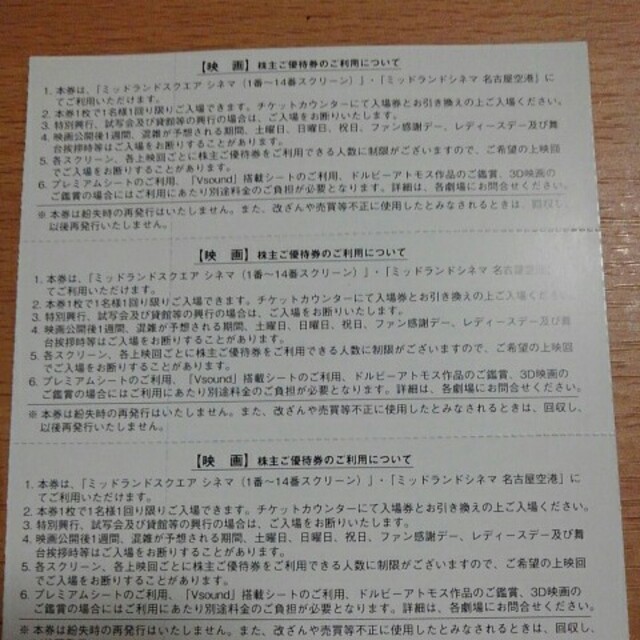 【映　画】株主ご優待券のご利用について
1. 本券は、「ミッドランドスクエア シネマ（1番〜14番スクリーン）」・「ミッドランドシネマ 名古屋空港」に
てご利用いただけます。
2. 本券1枚で1名様1回り限りご入場できます。チケットカウンターにて入場券とお引き換えの上ご入場ください。
3. 特別興行、試写会及び貸館等の興行の場合は、ご入場をお断りいたします。
4. 映画公開後1週間、混雑が予想される期間、土曜日、日曜日、祝日、ファン感謝デー、レディースデー及び舞
台挨拶時等はご入場をお断りすることがあります。
5. 各スクリーン、各上映回ごとに株主ご優待券をご利用できる人数に制限がございますので、ご希望の上映回
でご入場をお断りすることがあります。
6. プレミアムシートのご利用、「Vsound」搭載シートのご利用、ドルビーアトモス作品のご鑑賞、3D映画の
ご鑑賞の場合はご利用にあたり別途料金のご負担が必要となります。詳細は、各劇場にお問合せください。
※ 本券は紛失時の再発行はいたしません。また、改ざんや売買等不正に使用したとみなされるときは、回収し、
以後再発行いたしません。
【映　画】株主ご優待券のご利用について
1. 本券は、「ミッドランドスクエア シネマ（1番〜14番スクリーン）」・「ミッドランドシネマ 名古屋空港」に
てご利用いただけます。
2. 本券1枚で1名様1回り限りご入場できます。チケットカウンターにて入場券とお引き換えの上ご入場ください。
3. 特別興行、試写会及び貸館等の興行の場合は、ご入場をお断りいたします。
4. 映画公開後1週間、混雑が予想される期間、土曜日、日曜日、祝日、ファン感謝デー、レディースデー及び舞
台挨拶時等はご入場をお断りすることがあります。
5. 各スクリーン、各上映回ごとに株主ご優待券をご利用できる人数に制限がございますので、ご希望の上映回
でご入場をお断りすることがあります。
6. プレミアムシートのご利用、「Vsound」搭載シートのご利用、ドルビーアトモス作品のご鑑賞、3D映画の
ご鑑賞の場合はご利用にあたり別途料金のご負担が必要となります。詳細は、各劇場にお問合せください。
※ 本券は紛失時の再発行はいたしません。また、改ざんや売買等不正に使用したとみなされるときは、回収し、
以後再発行いたしません。
【映　画】株主ご優待券のご利用について
1. 本券は、「ミッドランドスクエア シネマ（1番〜14番スクリーン）」・「ミッドランドシネマ 名古屋空港」に
てご利用いただけます。
2. 本券1枚で1名様1回り限りご入場できます。チケットカウンターにて入場券とお引き換えの上ご入場ください。
3. 特別興行、試写会及び貸館等の興行の場合は、ご入場をお断りいたします。
4. 映画公開後1週間、混雑が予想される期間、土曜日、日曜日、祝日、ファン感謝デー、レディースデー及び舞
台挨拶時等はご入場をお断りすることがあります。
5. 各スクリーン、各上映回ごとに株主ご優待券をご利用できる人数に制限がございますので、ご希望の上映回
でご入場をお断りすることがあります。
6. プレミアムシートのご利用、「Vsound」搭載シートのご利用、ドルビーアトモス作品のご鑑賞、3D映画の
ご鑑賞の場合はご利用にあたり別途料金のご負担が必要となります。詳細は、各劇場にお問合せください。
※ 本券は紛失時の再発行はいたしません。また、改ざんや売買等不正に使用したとみなされるときは、回収し、